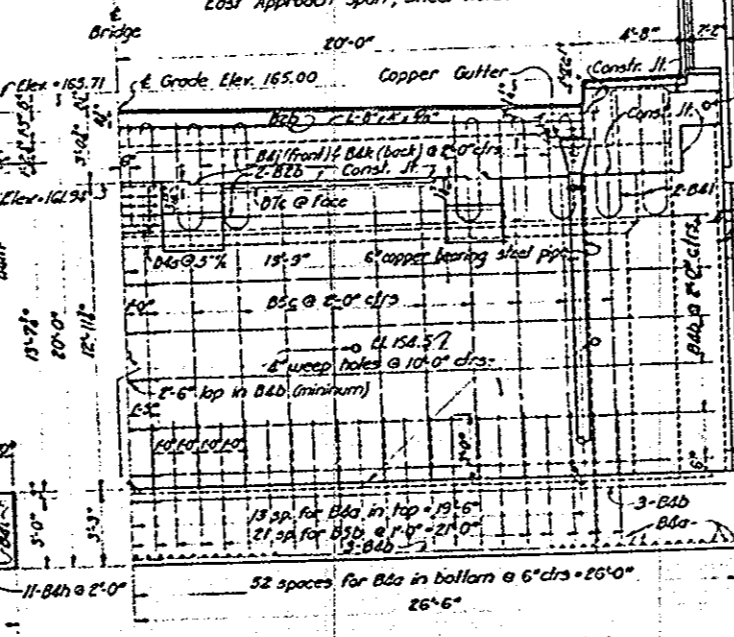 East Approach Span,
Bridge
20'-0"
4'-8"
2'-2"
Elev. = 165.71
₵ Grade Elev. 165.00
Copper Gutter
Constr. Jt.
Const. Jt.
B2b
B4j (front) & B4k (back) @ 2'-0" ctrs
2-B2b
Const. Jt.
2-B4l
B7c @ Face
13'-9"
6" copper bearing steel pipe
1'-0"
B5c @ 2'-0" ctrs
B4b @ 2'-0" ctrs
20'-0"
El. 154.57
4" weep holes @ 10'-0" ctrs
2'-6" lap in B4b (minimum)
1'-0" 1'-0" 1'-0" 1'-0"
6"
13 sp. for B4a in top = 19'-6"
21 sp for B5b @ 1'-0" = 21'-0"
3-B4b
3-B4b
B4a
3'-0"
3'-3"
11-B4h @ 2'-0"
52 spaces for B4a in bottom @ 6" ctrs = 26'-0"
26'-6"